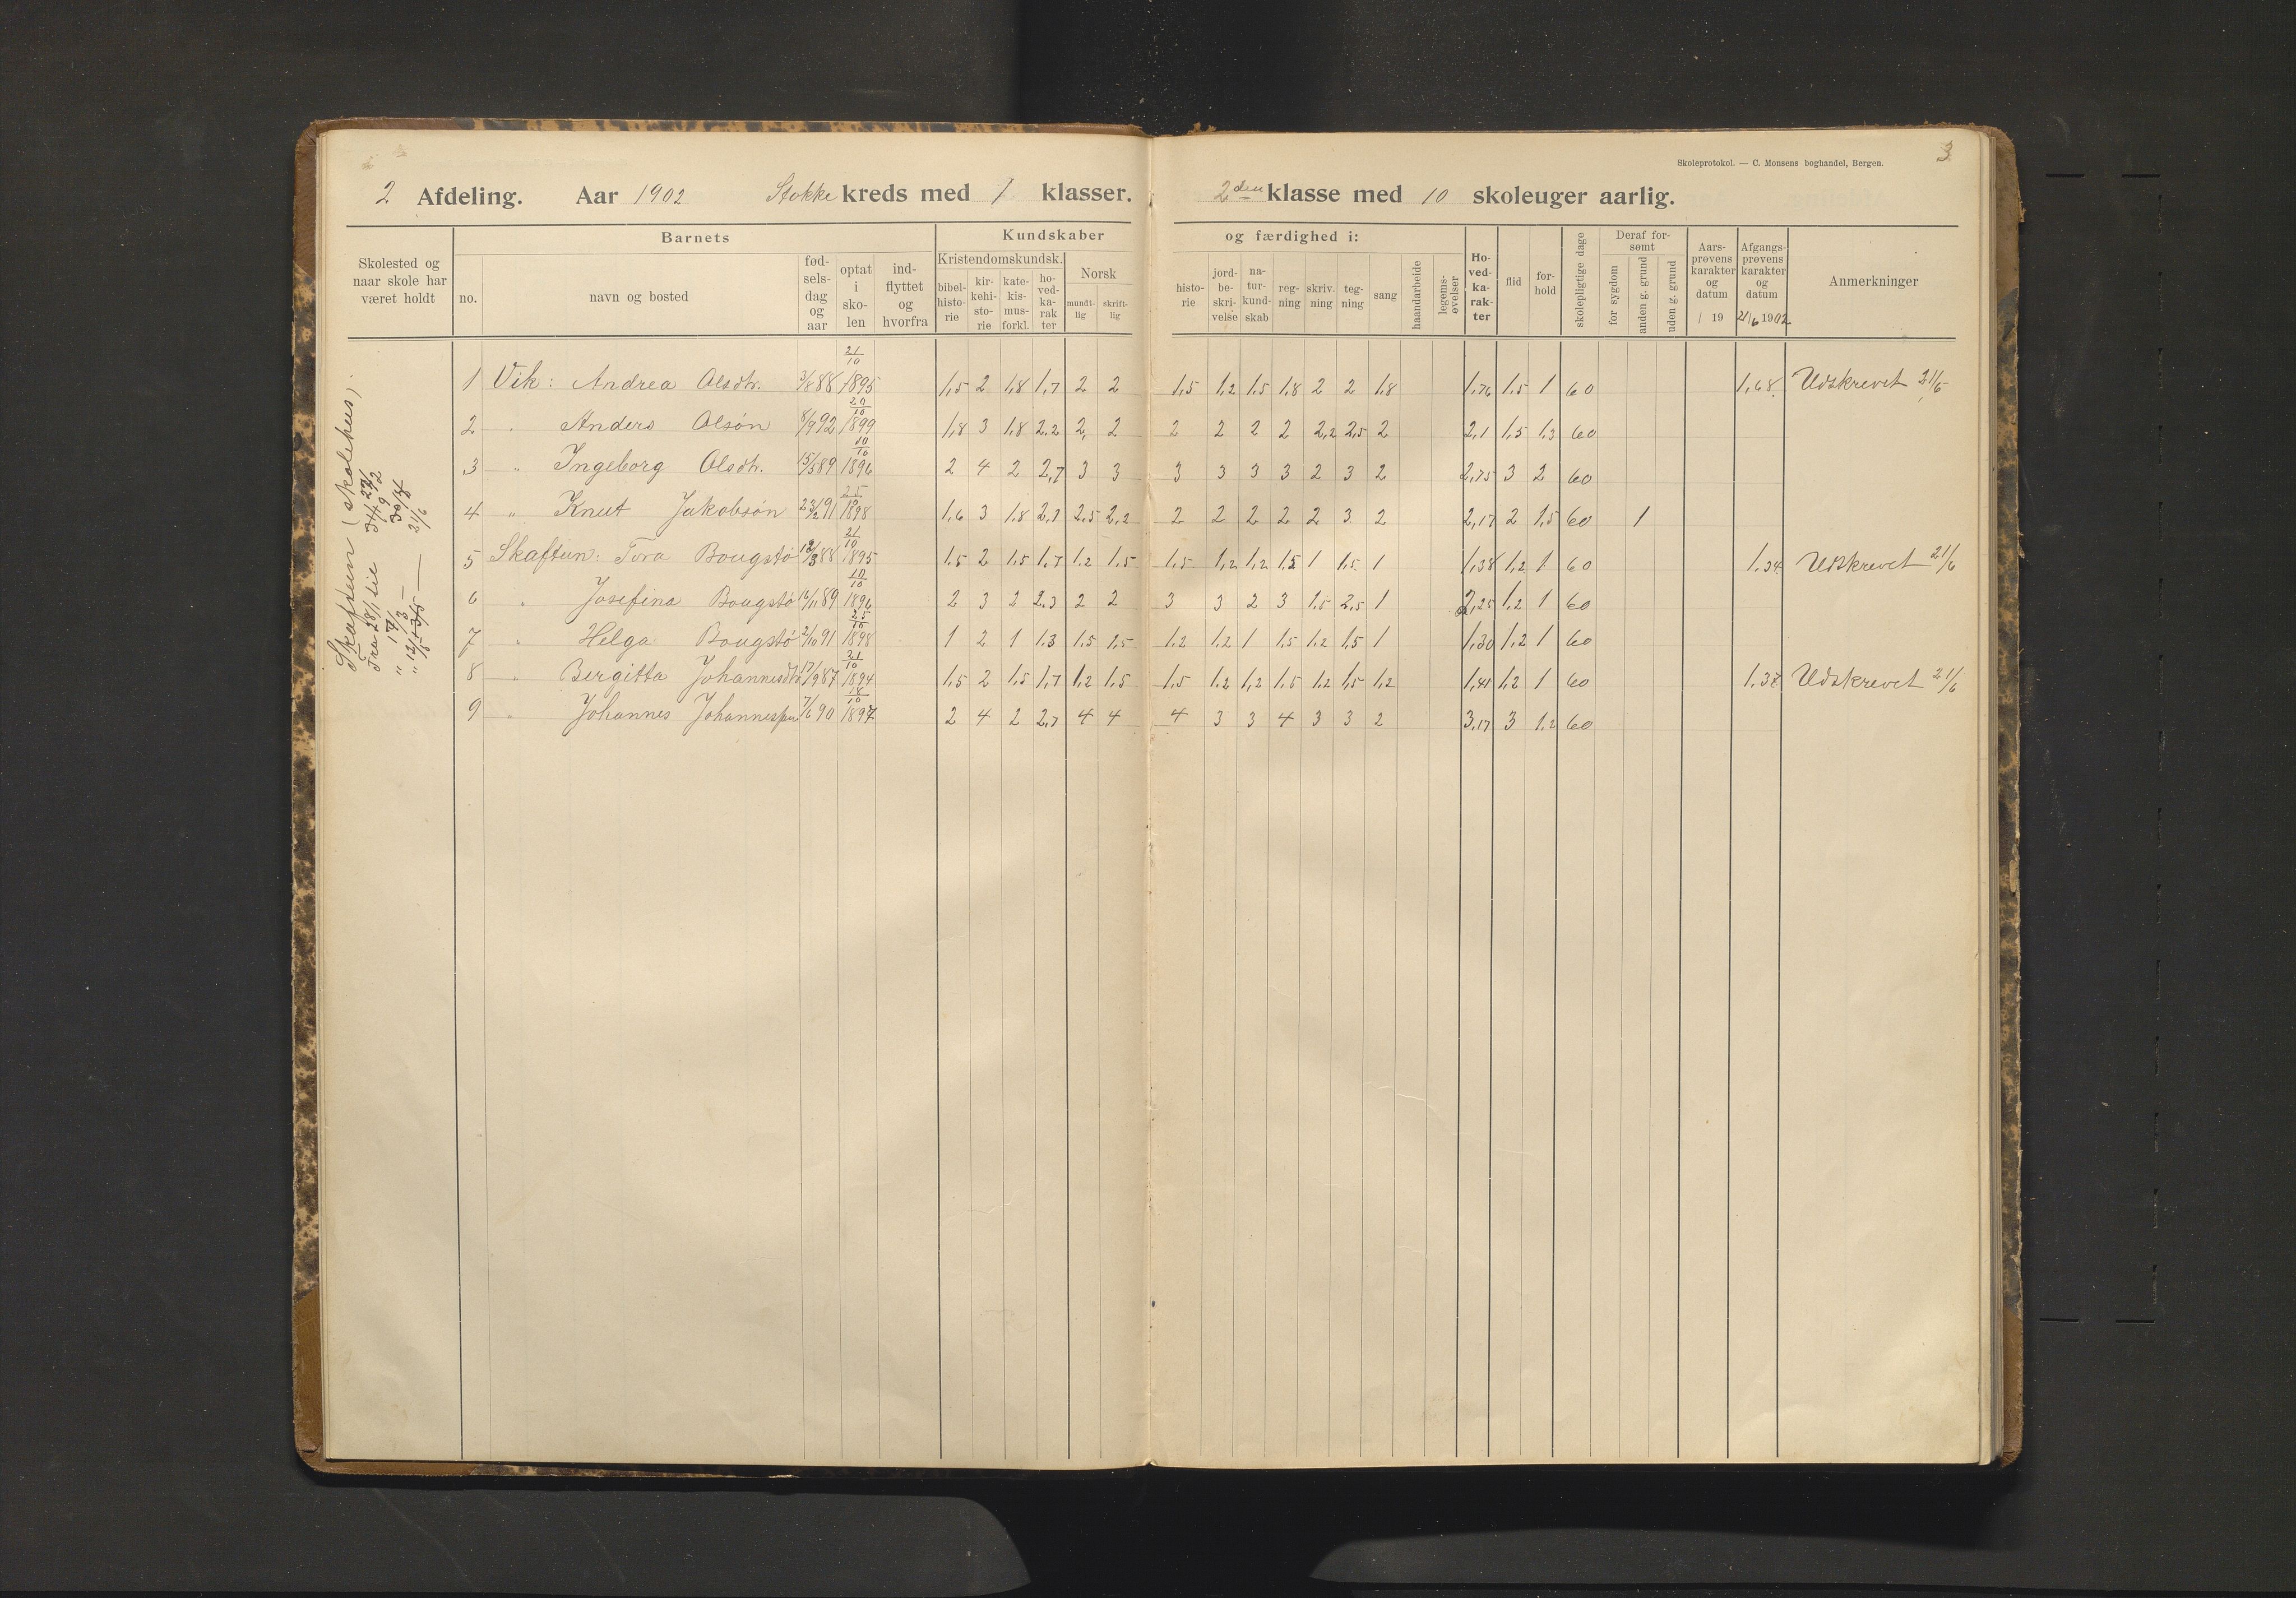 Skoleprotokol. — C. Monsens boghandel, Bergen.
3
2 Afdeling. Aar 1902 Stokke kreds med 1 klasser. 2den klasse med 10 skoleuger aarlig.
Skolested og naar skole har været holdt
Barnets
no.
navn og bosted
fødselsdag og aar
optat i skolen
indflyttet og hvorfra
Kundskaber og færdighed i:
Kristendomskundsk.
bibelhistorie
kirkehistorie
katekismusforkl.
hovedkarakter
Norsk
mundtlig
skriftlig
historie
jordbeskrivelse
naturkundskab
regning
skrivning
tegning
sang
haandarbeide
legemsøvelser
Hovedkarakter
flid
forhold
skolepligtige dage
Deraf forsømt
for sygdom
anden g. grund
uden g. grund
Aarsprøvens karakter og datum / 19
Afgangsprøvens karakter og datum 21/6 1902
Anmerkninger
Skaftun (skolehus).
1 Vik: Andrea Olsdtr. 3/8 88 21/10 1895 1,5 2 1,8 1,7 2 2 1,5 1,2 1,5 1,8 2 2 1,8 1,76 1,5 1 60 1,68 Udskrevet 21/6
2 " Anders Olsøn 8/9 92 20/10 1899 1,8 3 1,8 2,2 2, 2 2 2 2 2 2,2 2,5 2 2,1 1,5 1,3 60
3 " Ingeborg Olsdtr. 15/5 89 10/10 1896 2 4 2 2,7 3 3 3 3 3 3 2 3 2 2,75 3 2 60
4 " Knut Jakobsøn 23/12 91 25/10 1898 1,6 3 1,8 2,1 2,5 2,2 2 2 2 2 2 3 2 2,17 2 1,5 60 1
5 Skaftun: Tora Bougstø 88 21/10 1895 1,5 2 1,5 1,7 1,2 1,5 1,5 1,2 1,2 1,5 1 1,5 1 1,38 1,2 1 60 1,34 Udskrevet 21/6
6 " Josefina Bougstø 16/11 89 10/10 1896 2 3 2 2,3 2 2 3 3 2 3 1,5 2,5 1 2,25 1,2 1 60
7 " Helga Bougstø 2/10 91 25/10 1898 1 2 1 1,3 1,5 1,5 1,2 1,2 1 1,5 1,2 1,5 1 1,30 1,2 1 60
8 " Bergitta Johannesdtr 17/9 87 21/10 1894 1,5 2 1,5 1,7 1,2 1,5 1,5 1,2 1,2 1,5 1,2 1,5 1,2 1,41 1,2 1 60 Udskrevet 21/6
9 " Johannes Johannessen 7/6 90 18/10 1897 2 4 2 2,7 4 4 4 3 3 4 3 3 2 3,17 3 1,2 60